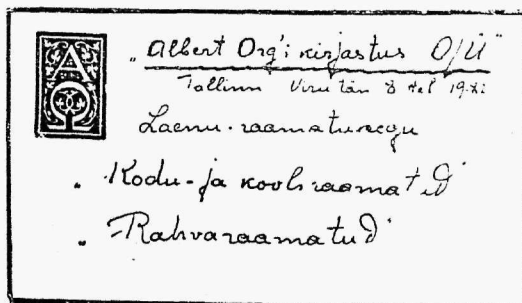 „Albert Org'i kirjastus O/Ü"
Tallinn Viru tän 8 tel
Laenu-raamatukogu
„Kodu- ja kooliraamatud"
„Rahvaraamatud"